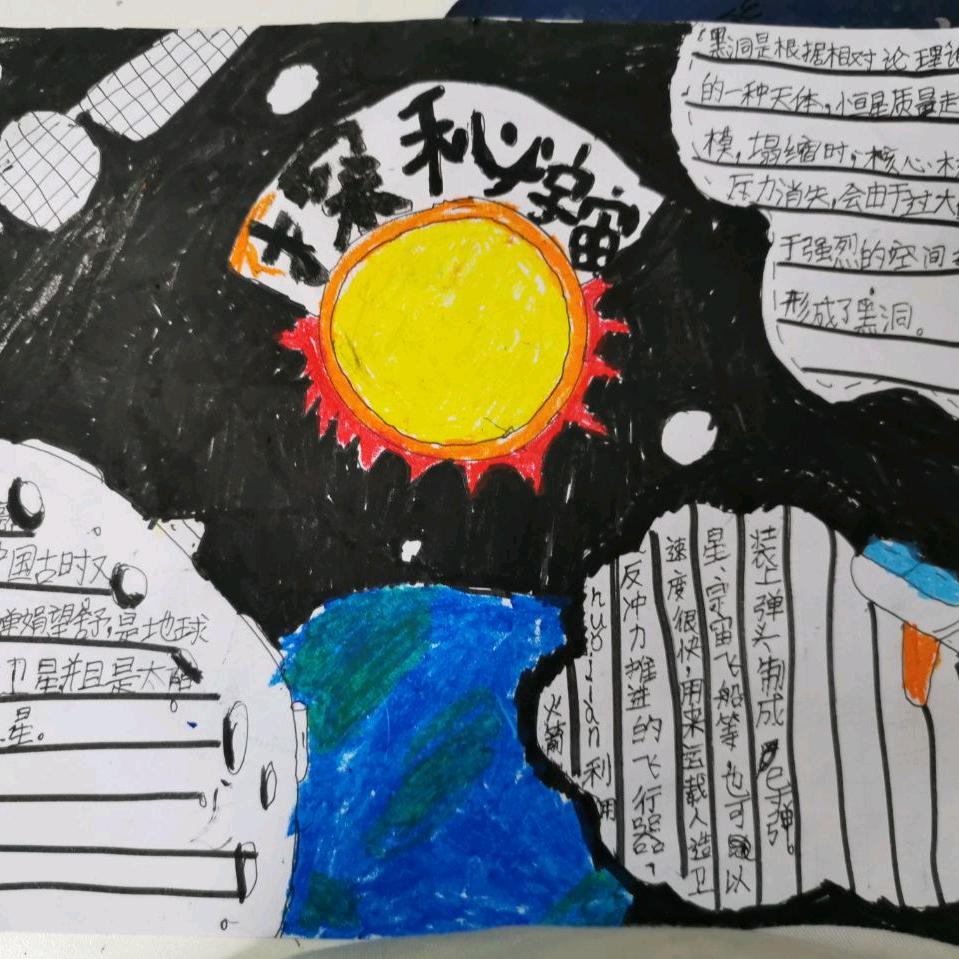 探秘宇宙
黑洞是根据相对论理论
的一种天体,恒星质量足
模,塌缩时,核心
压力消失,会由于过大
于强烈的空间
形成了黑洞。
中国古时又
婵娟望舒,是地球
卫星并且是太
星。
火箭
huojian利用
反冲力推进的飞行器,
速度很快,用来运载人造卫
星、宇宙飞船等,也可以
装上弹头制成导弹。